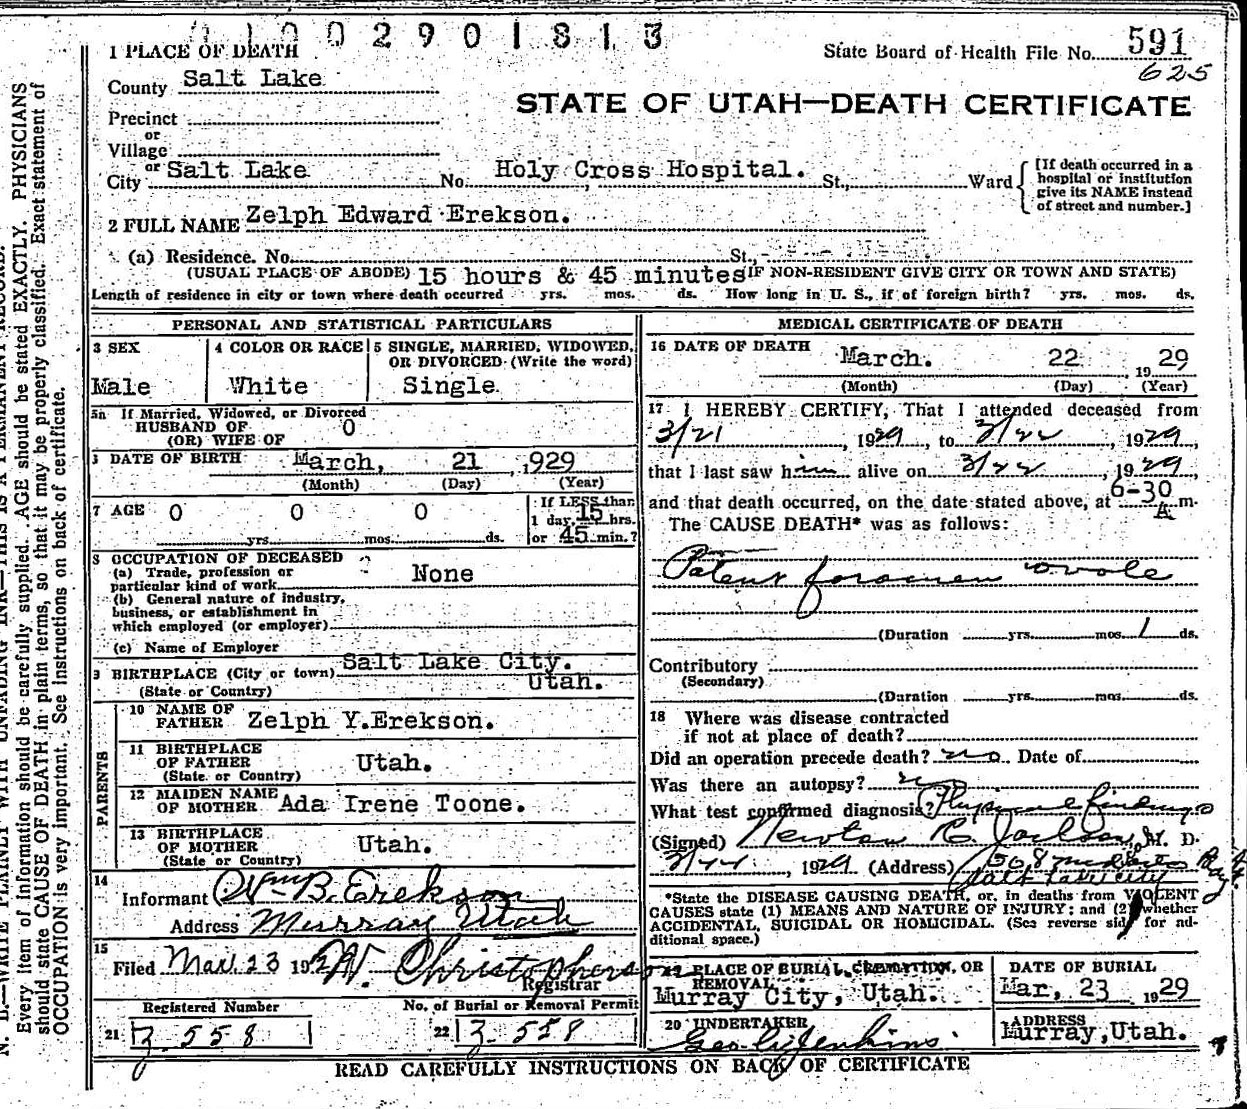 0 1 0 0 2 9 0 1 8 1 3
1 PLACE OF DEATH
State Board of Health File No. 591
625
County Salt Lake
STATE OF UTAH—DEATH CERTIFICATE
Precinct
or
Village
or
City Salt Lake No. Holy Cross Hospital. St., Ward
[If death occurred in a
hospital or institution
give its NAME instead
of street and number.]
2 FULL NAME Zelph Edward Erekson.
(a) Residence. No. St.,
(USUAL PLACE OF ABODE) 15 hours & 45 minutes (IF NON-RESIDENT GIVE CITY OR TOWN AND STATE)
Length of residence in city or town where death occurred yrs. mos. ds. How long in U. S., if of foreign birth? yrs. mos. ds.
PERSONAL AND STATISTICAL PARTICULARS
3 SEX
Male
4 COLOR OR RACE
White
5 SINGLE, MARRIED, WIDOWED,
OR DIVORCED (Write the word)
Single
5a If Married, Widowed, or Divorced
HUSBAND OF
(OR) WIFE OF 0
DATE OF BIRTH March, 21 ,929
(Month) (Day) (Year)
7 AGE 0 0 0
yrs. mos. ds.
If LESS than
1 day, 15 hrs.
or 45 min.?
8 OCCUPATION OF DECEASED
(a) Trade, profession or
particular kind of work None
(b) General nature of industry,
business, or establishment in
which employed (or employer)
(c) Name of Employer
9 BIRTHPLACE (City or town) Salt Lake City.
(State or Country) Utah.
PARENTS
10 NAME OF
FATHER Zelph Y.Erekson.
11 BIRTHPLACE
OF FATHER Utah.
(State or Country)
12 MAIDEN NAME
OF MOTHER Ada Irene Toone.
13 BIRTHPLACE
OF MOTHER Utah.
(State or Country)
14
Informant Wm B. Erekson
Address Murray Utah
15
Filed Mar. 23 1929 W. Christopherson
Registrar
Registered Number
21 Z 558
No. of Burial or Removal Permit
22 Z 558
MEDICAL CERTIFICATE OF DEATH
16 DATE OF DEATH
March. 22 1929
(Month) (Day) (Year)
17 I HEREBY CERTIFY, That I attended deceased from
3/21, 1929, to 3/22, 1929
that I last saw him alive on 3/22, 1929
and that death occurred, on the date stated above, at 6-30 A m.
The CAUSE DEATH* was as follows:
Patent foramen ovale
(Duration yrs. mos. 1 ds.
Contributory
(Secondary)
(Duration yrs. mos. ds.
18 Where was disease contracted
if not at place of death?
Did an operation precede death? no Date of
Was there an autopsy? no
What test confirmed diagnosis? Physical findings
(Signed) Newton R. Jackson, M. D.
3/22, 1929 (Address) Salt Lake City
*State the DISEASE CAUSING DEATH, or, in deaths from VIOLENT
CAUSES state (1) MEANS AND NATURE OF INJURY; and (2) whether
ACCIDENTAL, SUICIDAL OR HOMICIDAL. (See reverse side for ad-
ditional space.)
19 PLACE OF BURIAL, CREMATION, OR
REMOVAL
Murray City, Utah.
DATE OF BURIAL
Mar, 23 1929
20 UNDERTAKER
Geo. Jenkins.
ADDRESS
Murray,Utah.
READ CAREFULLY INSTRUCTIONS ON BACK OF CERTIFICATE
N. B.—WRITE PLAINLY WITH UNFADING INK—THIS IS A PERMANENT RECORD.
Every item of information should be carefully supplied. AGE should be stated EXACTLY. PHYSICIANS
should state CAUSE OF DEATH in plain terms, so that it may be properly classified. Exact statement of
OCCUPATION is very important. See instructions on back of certificate.